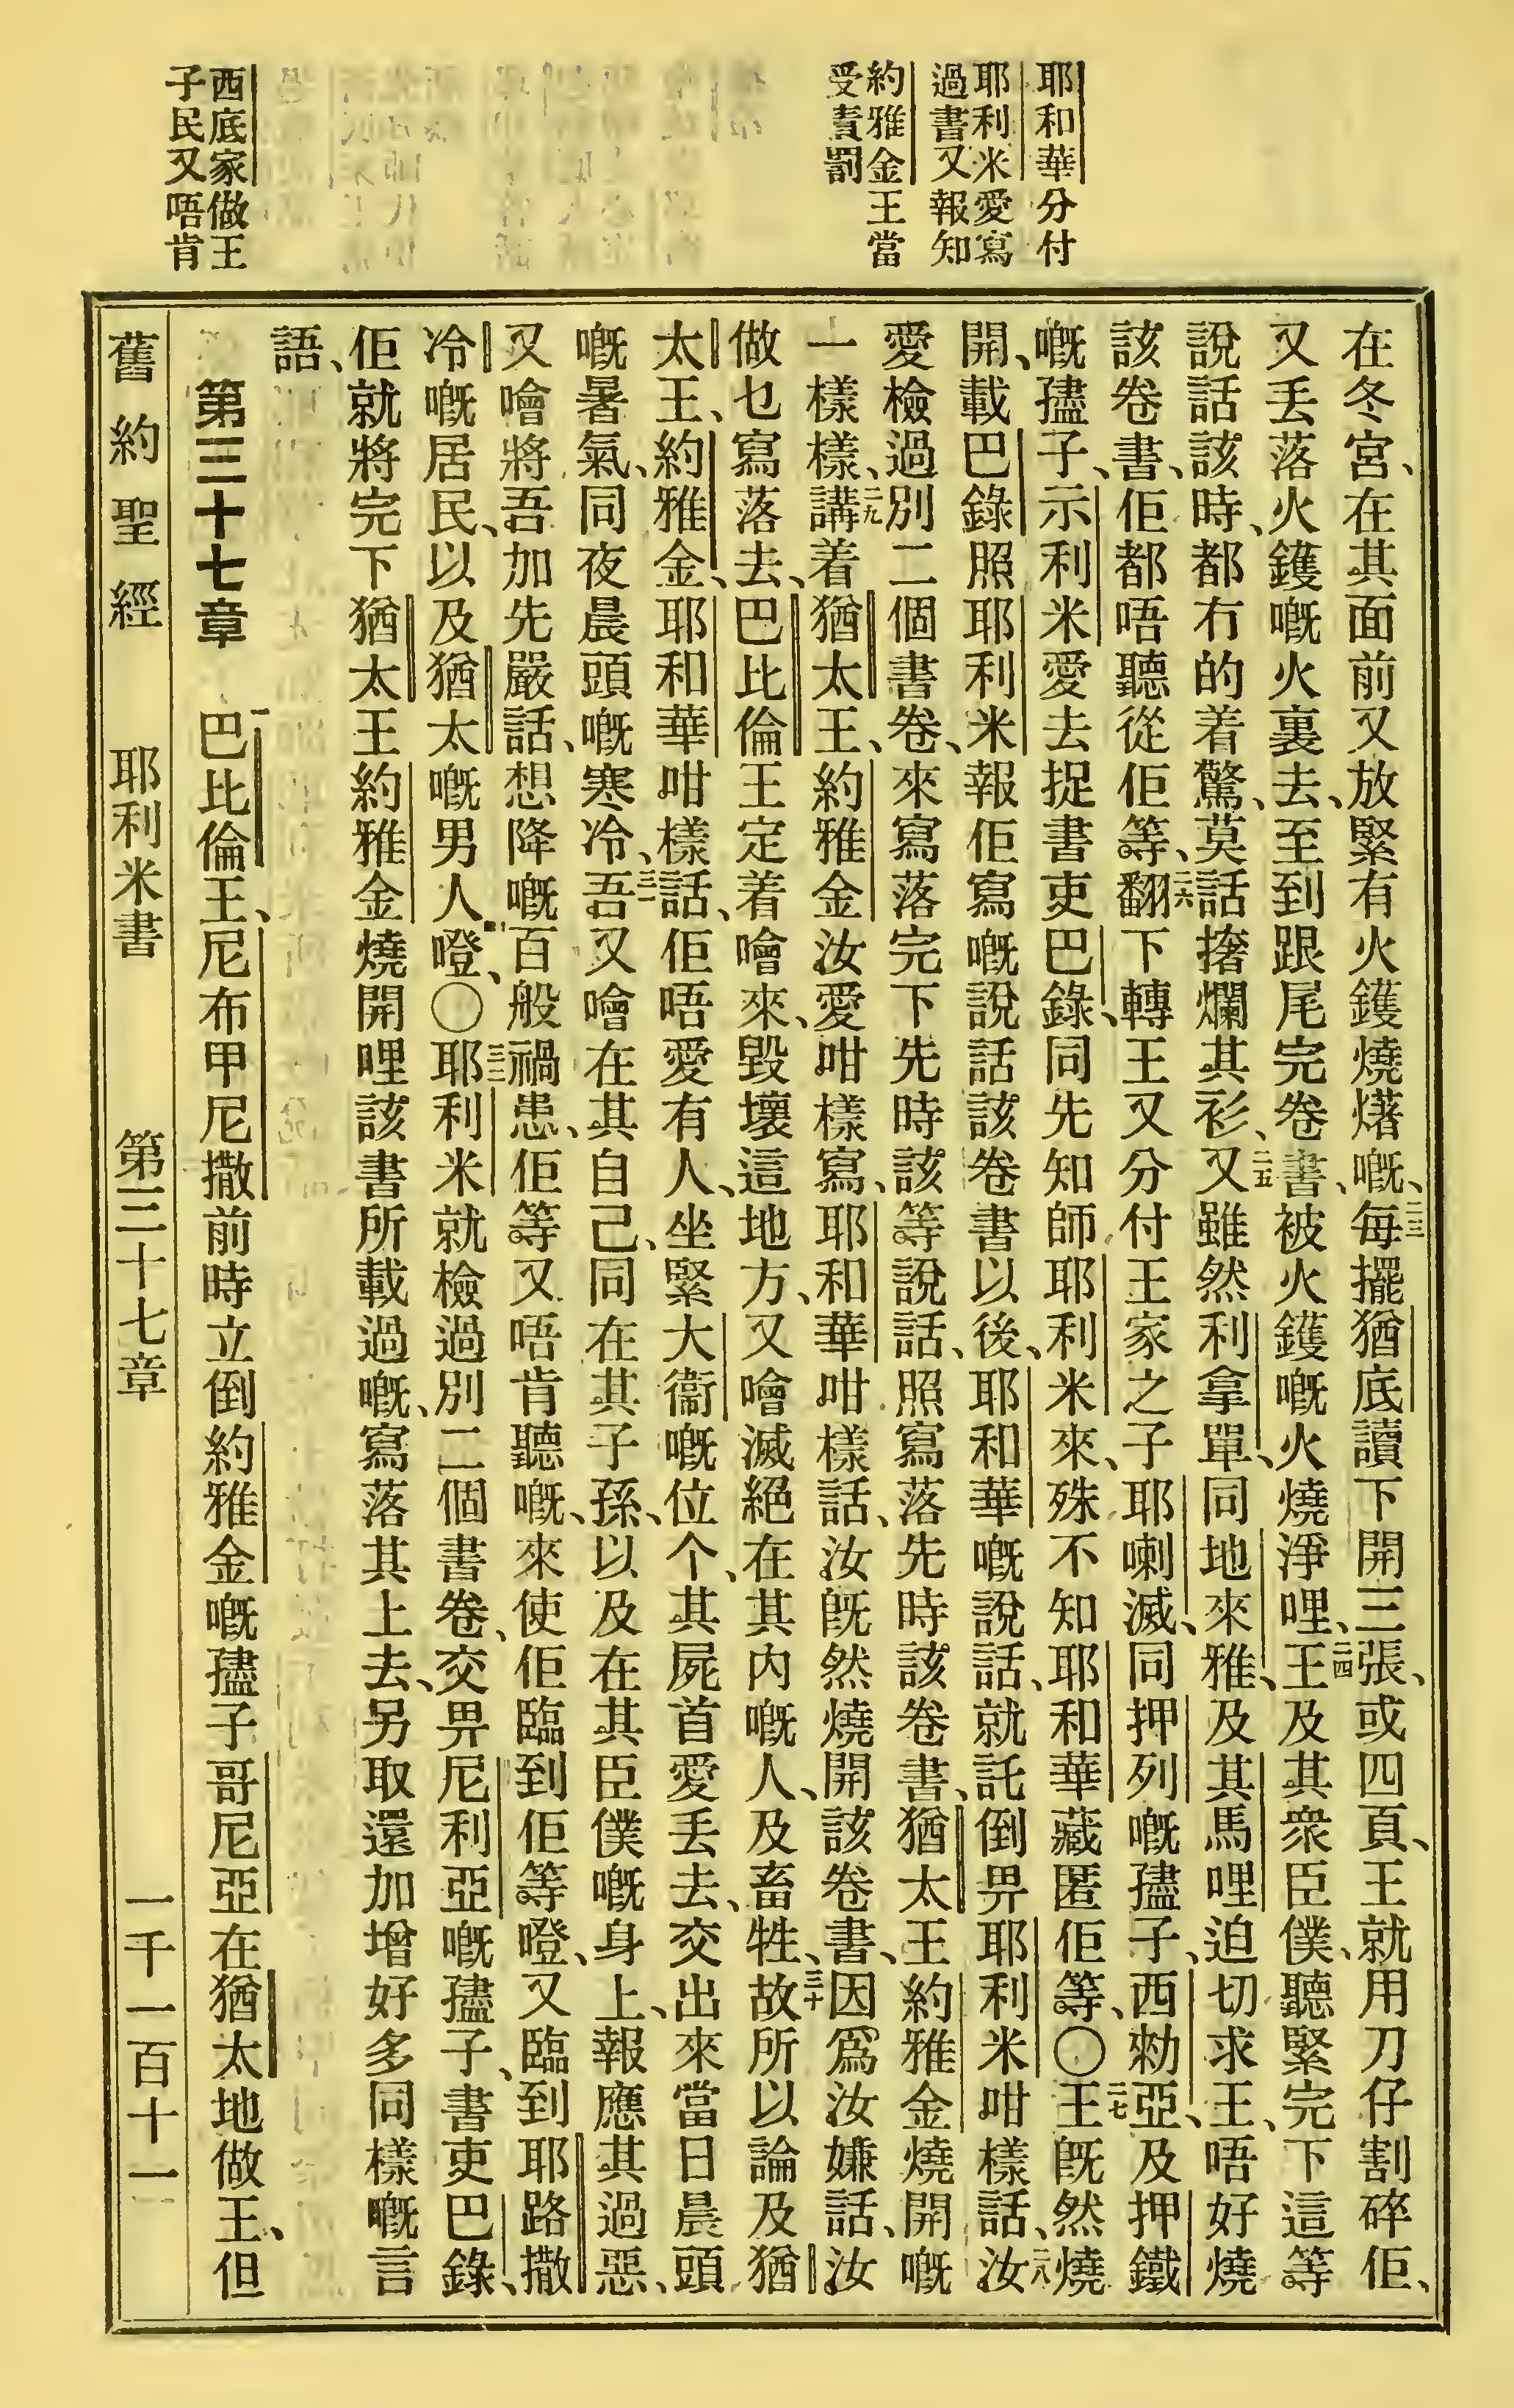 耶和華分付
耶利米愛寫
過書又報知
約雅金王當
受責罰
西底家做王
子民又唔肯
在冬宮、在其面前又放緊有火鑊燒㷮嘅、二三每擺猶底讀下開三張、或四頁、王就用刀仔割碎佢、
又丢落火鑊嘅火裏去、至到跟尾完卷書、被火鑊嘅火燒淨哩、二四王及其衆臣僕、聽緊完下這等
說話該時、都冇的着驚、莫話撦爛其衫、二五又雖然利拿單、同地來雅、及其馬哩迫切求王、唔好燒
該卷書、佢都唔聽從佢等、二六翻下轉王又分付王家之子耶喇滅、同押列嘅孻子、西勑亞、及押鐵
嘅孻子、示利米愛去捉書吏巴錄、同先知師耶利米來、殊不知耶和華藏匿佢等、〇二七王旣然燒
開、載巴錄照耶利米報佢寫嘅說話該卷書以後、耶和華嘅說話、就託倒畀耶利米咁樣話、二八汝
愛檢過別二個書卷、來寫落完下先時該等說話、照寫落先時該卷書、猶太王約雅金燒開嘅
一樣樣、二九講着猶太王、約雅金汝愛咁樣寫、耶和華咁樣話、汝旣然燒開該卷書、因爲汝嫌話、汝
做乜寫落去、巴比倫王定着噲來、毀壞這地方、又噲滅絕在其內嘅人、及畜牲、三十故所以論及猶
太王、約雅金、耶和華咁樣話、佢唔愛有人、坐緊大衞嘅位个、其屍首愛丢去、交出來當日晨頭
嘅暑氣、同夜晨頭嘅寒冷、三一吾又噲在其自己、同在其子孫、以及在其臣僕嘅身上、報應其過惡、
又噲將吾加先嚴話、想降嘅百般禍患、佢等又唔肯聽嘅、來使佢臨到佢等噔、又臨到耶路撒
冷嘅居民、以及猶太嘅男人噔、〇三二耶利米就檢過別二個書卷、交畀尼利亞嘅孻子、書吏巴錄、
佢就將完下猶太王約雅金燒開哩該書所載過嘅、寫落其上去、另取還加增好多同樣嘅言
語、
第三十七章 一巴比倫王、尼布甲尼撒前時立倒約雅金嘅孻子哥尼亞在猶太地做王、但
舊約聖經 耶利米書 第三十七章 一千一百十一